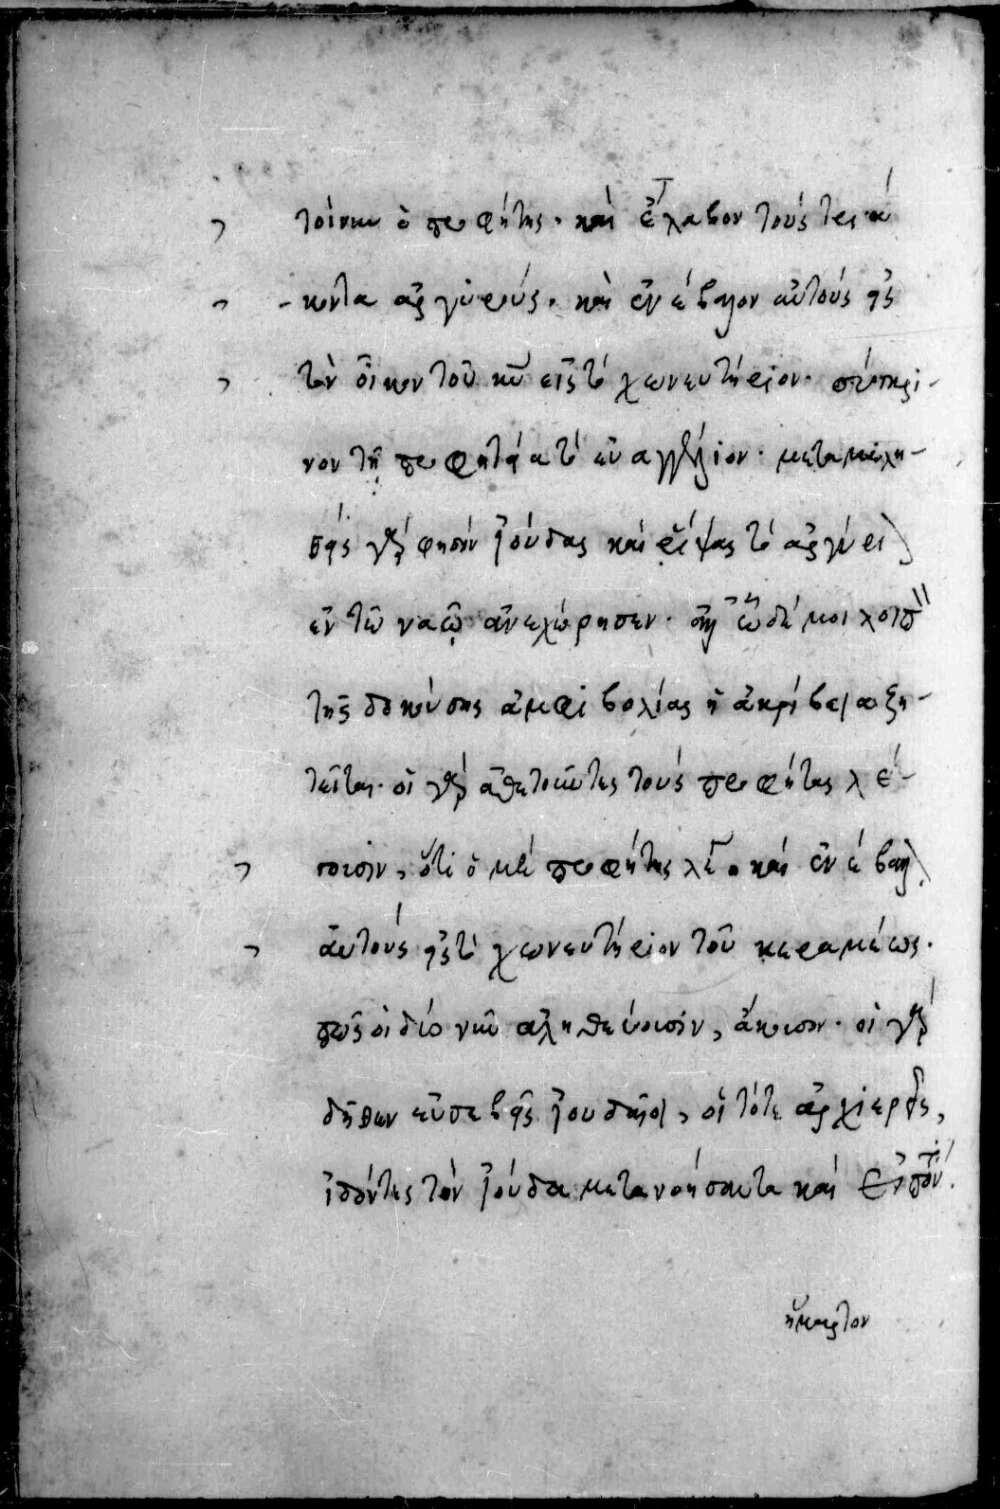 τοίνυν ὁ προφήτης· καὶ ἔλαβον τοὺς τριά
κοντα ἀργυροῦς· καὶ ἐνέβαλον αὐτοὺς εἰς
τὸν οἶκον τοῦ κυ εἰς τὸ χωνευτήριον· σύγκρι-
νον τῇ προφητείᾳ τὸ εὐαγγέλιον· μεταμελη-
θεὶς γάρ φησὶν ἰούδας καὶ ῥίψας τὸ ἀργύρι
ἐν τῶ ναῷ ἀνεχώρησεν· ὧδέ μοι λοιπ
τῆς δοκούσης ἀμφιβολίας ἡ ἀκρίβεια ζη-
τεῖται· οἱ γὰρ ἀθετοῦντες τοὺς προφήτας λέ-
γουσιν, ὅτι ὁ μὲν προφήτης λέ. καὶ ἐνέβαλ
αὐτοὺς εἰς τὸ χωνευτήριον τοῦ κεραμέως·
πῶς οἱ δύο νῦν ἀληθεύουσιν, ἄκουσον· οἱ γὰρ
δῆθεν εὐσεβεῖς ἰουδαῖοι, οἱ τότε ἀρχιερεῖς,
ἰδόντες τὸν ἰούδα μετανοήσαντα καὶ εἰπόν
ἥμαρτον